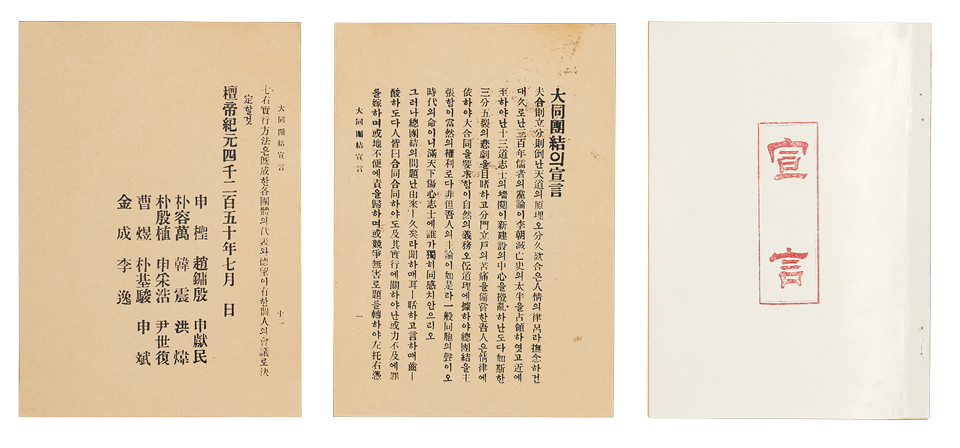 宣言
大同團結의宣言
夫合則立分則倒난天道의原理오分久欲合은人情의律呂라撫念하건
대久로난三百年儒者의黨論이李朝滅亡史의太半을占領하엿고近에
至하야난十三道志士의墻鬩이新建設의中心을攪亂하난도다如斯한
三分五裂의悲劇을目睹하고分門立戶의苦痛을備甞한吾人은情律에
依하야大合同을要求함이自然의義務오道理에據하야總團結을主
張함이當然의權利로다非但吾人의主論이如是라一般同胞의聲이오
時代의命이니滿天下傷心志士에誰가獨히同感치안으리오
그러나總團結의問題난由來ㅣ久矣라聞하매耳ㅣ聒하고言하매齒ㅣ
酸하도다人皆曰合同合同하야도及其實行에關하야난或力不及에罪
를嫁하며或地不便에責을歸하며或競爭無害로題를轉하야左托右憑
大同團結宣言 一
大同團結宣言 十一
七右實行方法은旣成한各團體의代表와德望이有한個人의會議로決
定할것
檀帝紀元四千二百五十年七月 日
申檉 趙鏞殷 申獻民
朴容萬 韓震 洪煒
朴殷植 申采浩 尹世復
曹煜 朴基駿 申斌
金成 李逸